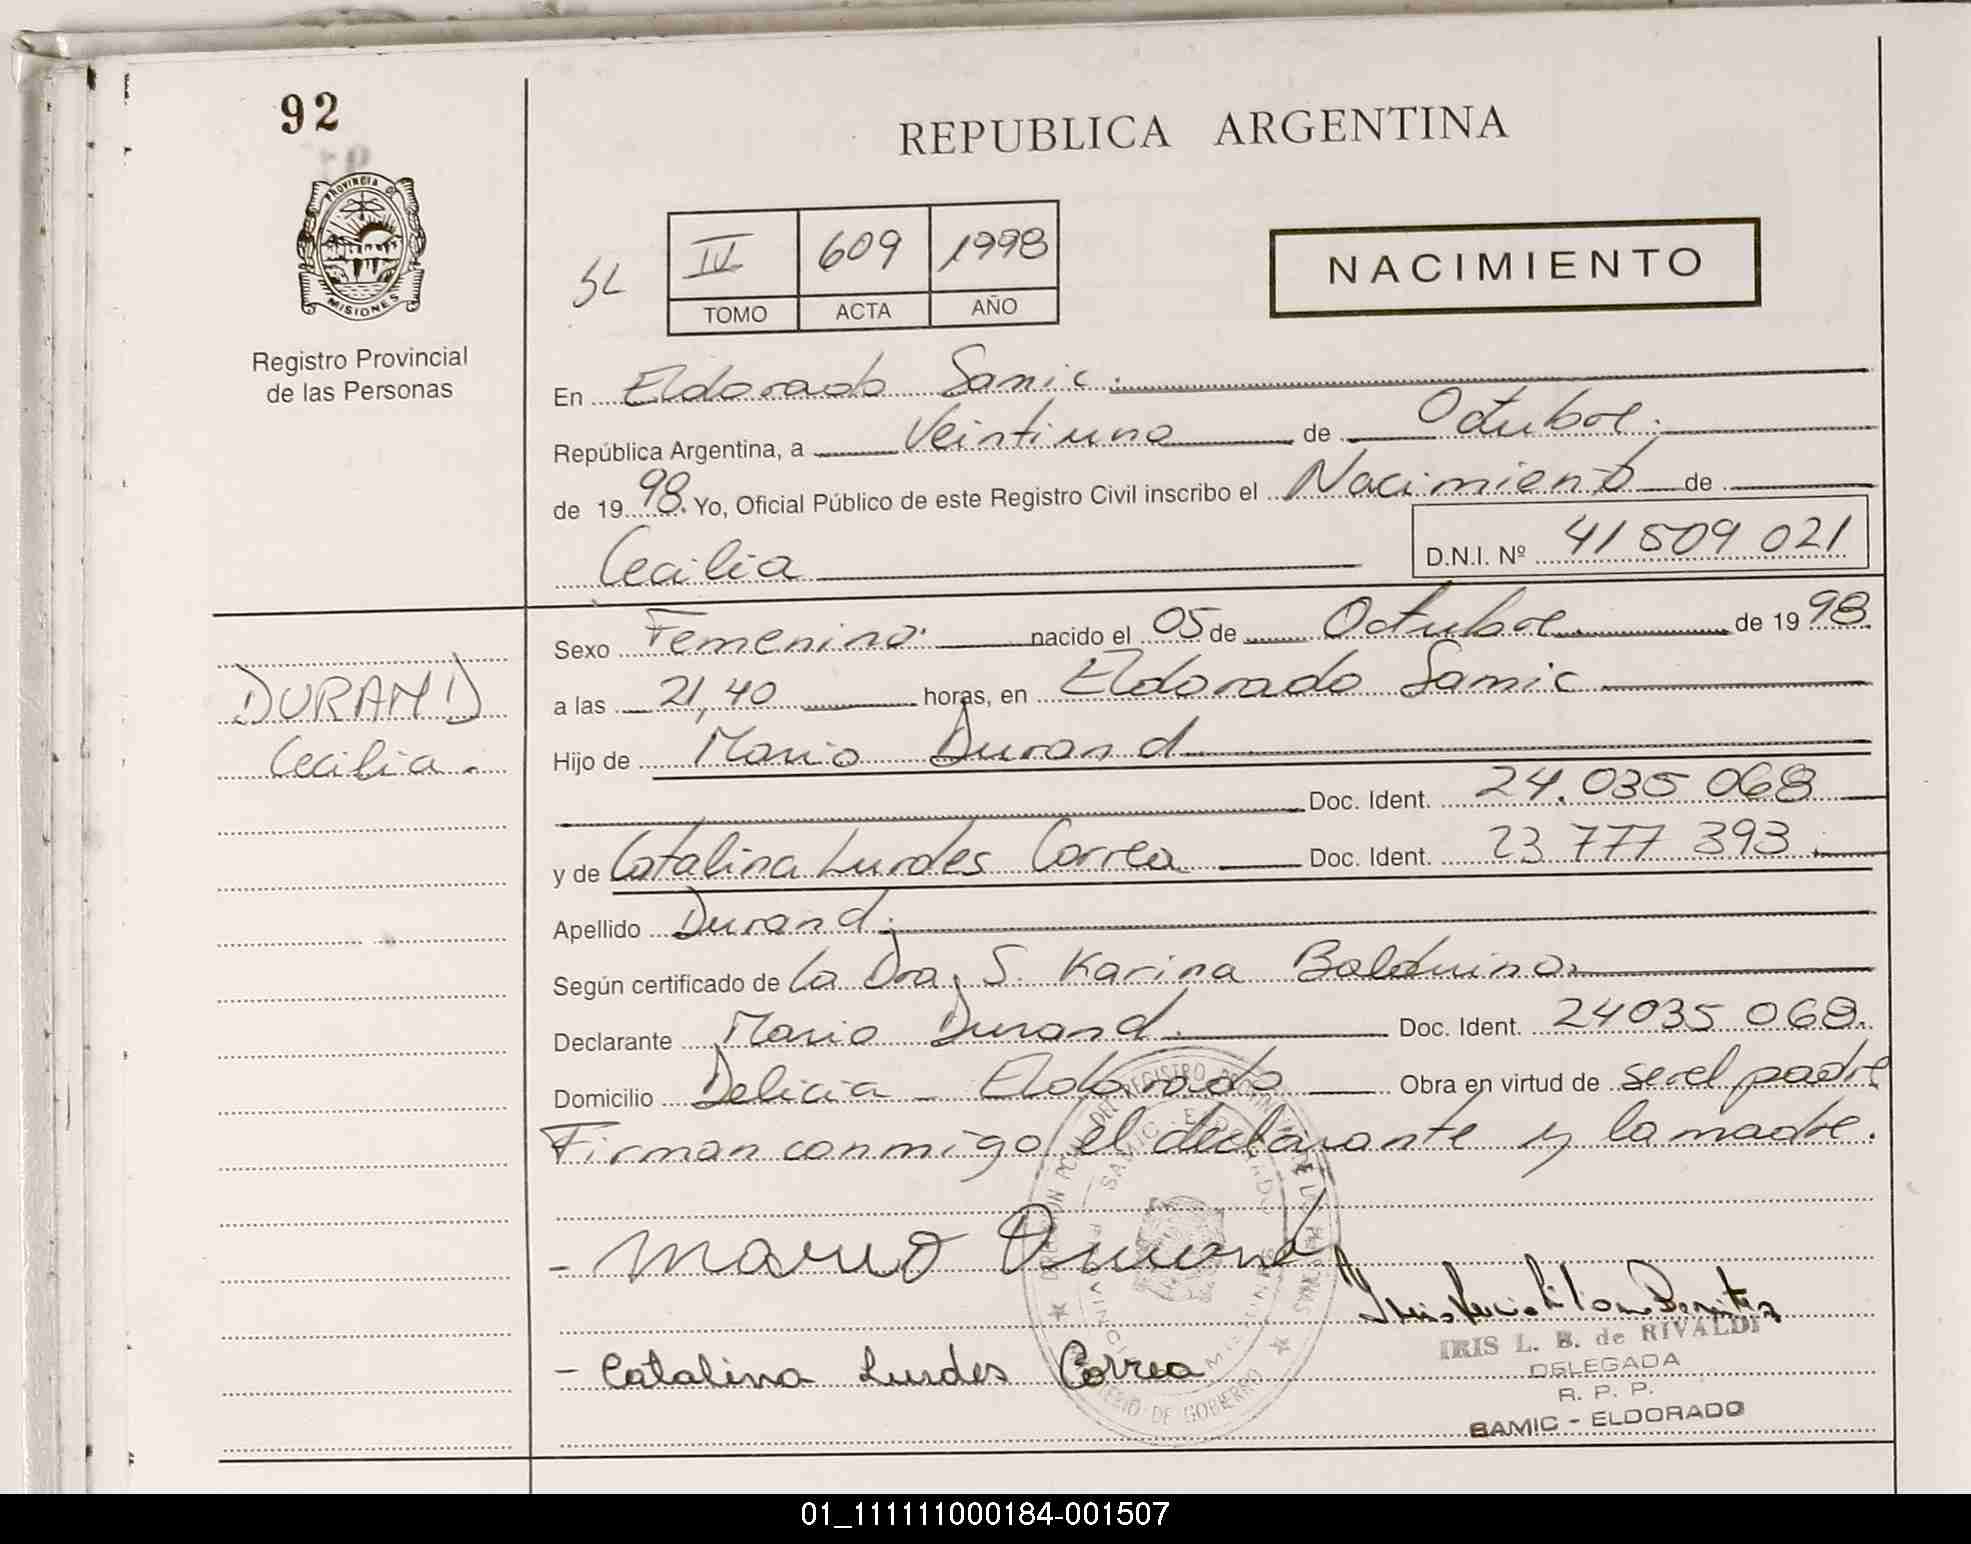 92
REPUBLICA ARGENTINA
PROVINCIA DE
MISIONES
Registro Provincial
de las Personas
SL
IV 609 1998
TOMO ACTA AÑO
NACIMIENTO
En Eldorado Samic.
República Argentina, a Veintiuno de Octubre.
de 1998. Yo, Oficial Público de este Registro Civil inscribo el Nacimiento de
Cecilia D.N.I. Nº 41 509 021
Sexo Femenino. nacido el 05 de Octubre de 1998.
DURAND
Cecilia.
a las 21,40 horas, en Eldorado Samic
Hijo de Mario Durand
Doc. Ident. 24.035 068
y de Catalina Lurdes Correa Doc. Ident. 23 777 393.
Apellido Durand.
Según certificado de la Dra. S. Karina Balduino.
Declarante Mario Durand. Doc. Ident. 24035 068.
Domicilio Delicia - Eldorado Obra en virtud de ser el padre
Firman conmigo el declarante y la madre.
- Mario Durand
IRIS L. B. de RIVALDI
DELEGADA
R. P. P.
SAMIC - ELDORADO
- Catalina Lurdes Correa
01_111111000184-001507